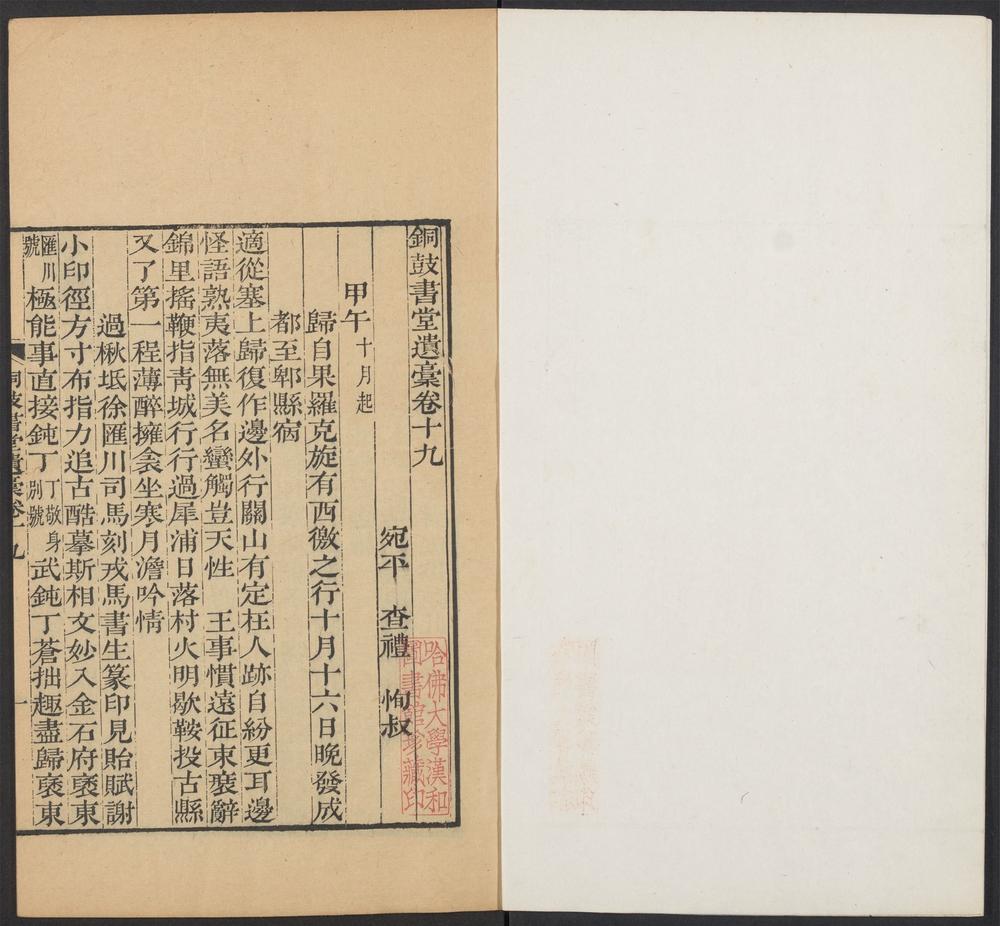 銅鼓書堂遺稾卷十九
宛平 查禮 恂叔
甲午十月起
歸自果羅克旋有西徼之行十月十六日晚發成
都至郫縣宿
適從塞上歸復作邊外行關山有定枉人跡自紛更耳邊
怪語熟夷落無美名蠻觸豈天性 王事慣遠征束裝辭
錦里搖鞭指靑城行行過犀浦日落村火明歇鞍投古縣
又了第一程薄醉擁衾坐寒月澹吟情
過楸坻徐匯川司馬刻戎馬書生篆印見貽賦謝
小印徑方寸布指力追古酷摹斯相文妙入金石府褎東
匯川號極能事直接鈍丁丁敬身別號武鈍丁蒼拙趣盡歸褎東
銅鼓書堂遺稾卷十九
一
哈佛大學漢和
圖書館珍藏印